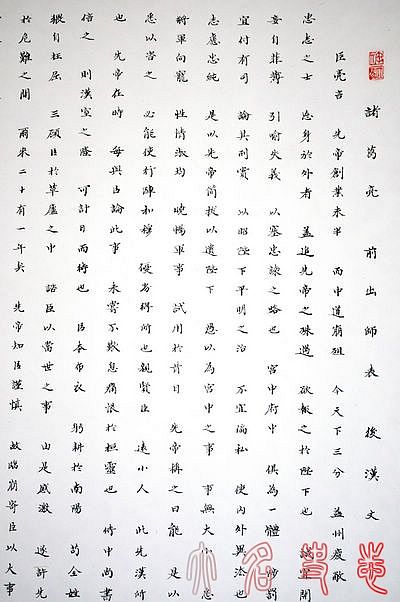 諸葛亮 前出師表 後漢文
臣亮言 先帝創業未半 而中道崩殂 今天下三分 益州疲敝
忠志之士 忘身於外者 蓋追先帝之殊遇 欲報之於陛下也 誠宜開
妄自菲薄 引喻失義 以塞忠諫之路也 宮中府中 俱為一體 陟罰
宜付有司 論其刑賞 以昭陛下平明之治 不宜偏私 使內外異法也
志慮忠純 是以先帝簡拔以遺陛下 愚以為宮中之事 事無大小 悉
將軍向寵 性情淑均 曉暢軍事 試用於昔日 先帝稱之曰能 是以
悉以咨之 必能使行陣和穆 優劣得所也 親賢臣 遠小人 此先漢所
也 先帝在時 每與臣論此事 未嘗不歎息痛恨於桓靈也 侍中尚書
信之 則漢室之隆 可計日而待也 臣本布衣 躬耕於南陽 苟全性
猥自枉屈 三顧臣於草廬之中 諮臣以當世之事 由是感激 遂許先
於危難之間 爾來二十有一年矣 先帝知臣謹慎 故臨崩寄臣以大事